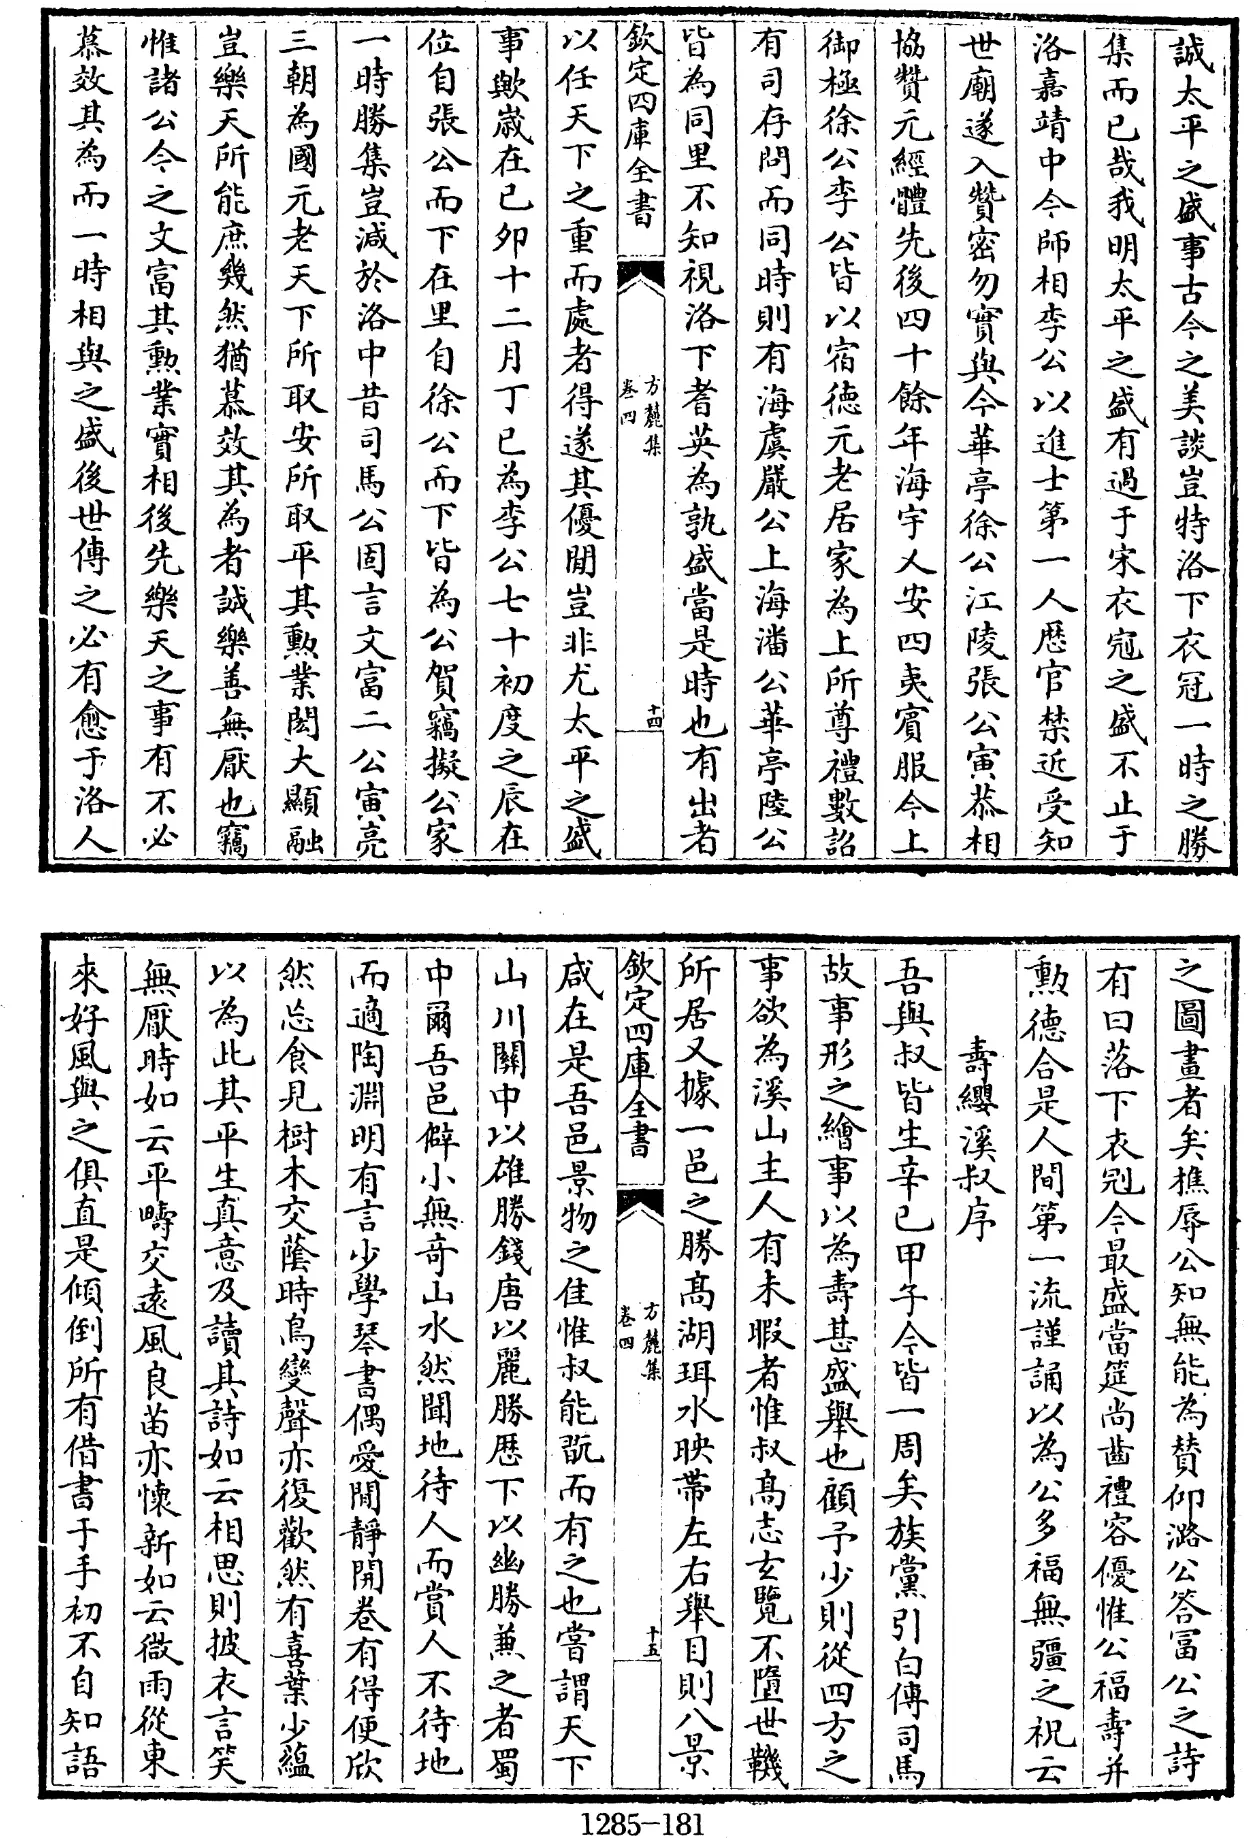 誠太平之盛事古今之美談豈特洛下衣冠一時之勝
集而已哉我明太平之盛有過于宋衣冠之盛不止于
洛嘉靖中今師相李公以進士第一人歴官禁近受知
世廟遂入贊密勿實與今華亭徐公江陵張公寅恭相
協贊元經體先後四十餘年海宇乂安四夷賓服今上
御極徐公李公皆以宿德元老居家為上所尊禮數詔
有司存問而同時則有海虞嚴公上海潘公華亭陸公
皆為同里不知視洛下耆英為孰盛當是時也有出者
欽定四庫全書
方麓集
卷四
十四
以任天下之重而處者得遂其優閒豈非尤太平之盛
事歟歲在己卯十二月丁巳為李公七十初度之辰在
位自張公而下在里自徐公而下皆為公賀竊擬公家
一時勝集豈減於洛中昔司馬公固言文富二公寅亮
三朝為國元老天下所取安所取平其勲業閎大顯融
豈樂天所能庶幾然猶慕效其為者誠樂善無厭也竊
惟諸公今之文富其勲業實相後先樂天之事有不必
慕效其為而一時相與之盛後世傳之必有愈于洛人
之圖畫者矣樵辱公知無能為賛仰潞公答冨公之詩
有曰落下衣冠今最盛當筵尚齒禮容優惟公福壽并
勲德合是人間第一流謹誦以為公多福無疆之祝云
壽纓溪叔序
吾與叔皆生辛巳甲子今皆一周矣族黨引白傅司馬
故事形之繪事以為壽甚盛舉也顧予少則從四方之
事欲為溪山主人有未暇者惟叔髙志玄覽不墮世鞿
所居又據一邑之勝髙湖珥水映帶左右舉目則八景
欽定四庫全書
方麓集
卷四
十五
咸在是吾邑景物之佳惟叔能翫而有之也嘗謂天下
山川關中以雄勝錢唐以麗勝歴下以幽勝兼之者蜀
中爾吾邑僻小無奇山水然聞地待人而賞人不待地
而適陶淵明有言少學琴書偶愛閒靜開卷有得便欣
然忘食見樹木交蔭時鳥變聲亦復歡然有喜葉少蘊
以為此其平生真意及讀其詩如云相思則披衣言笑
無厭時如云平疇交逺風良苗亦懷新如云微雨從東
來好風與之俱直是傾倒所有借書于手初不自知語
1285-181